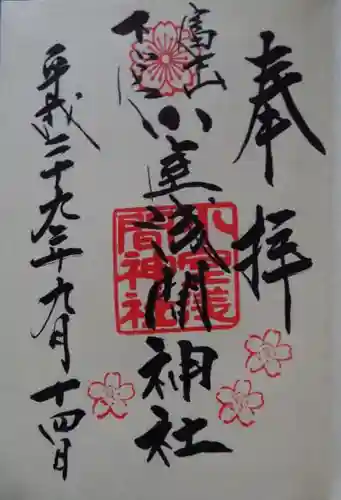 奉拝
富士山
下宮
小室浅間神社
平成二十九年九月十四日
小室浅間神社